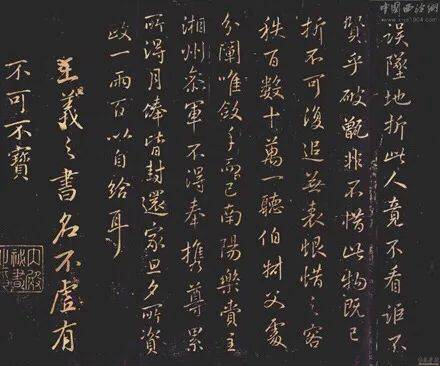 誤墜地折此人竟不看詎不
賢乎破甑非不惜此物既已
折不可復追無哀恨惜之容
秩百數十萬一聽伯樹父處
分闌唯斂手而已南陽樂賫主
湘州參軍不得奉攜尊累
所得月俸皆封還家旦夕所資
政一兩百以自給耳
王羲之書名不虛有
不可不寶
內殿秘書之印
中国西泠網